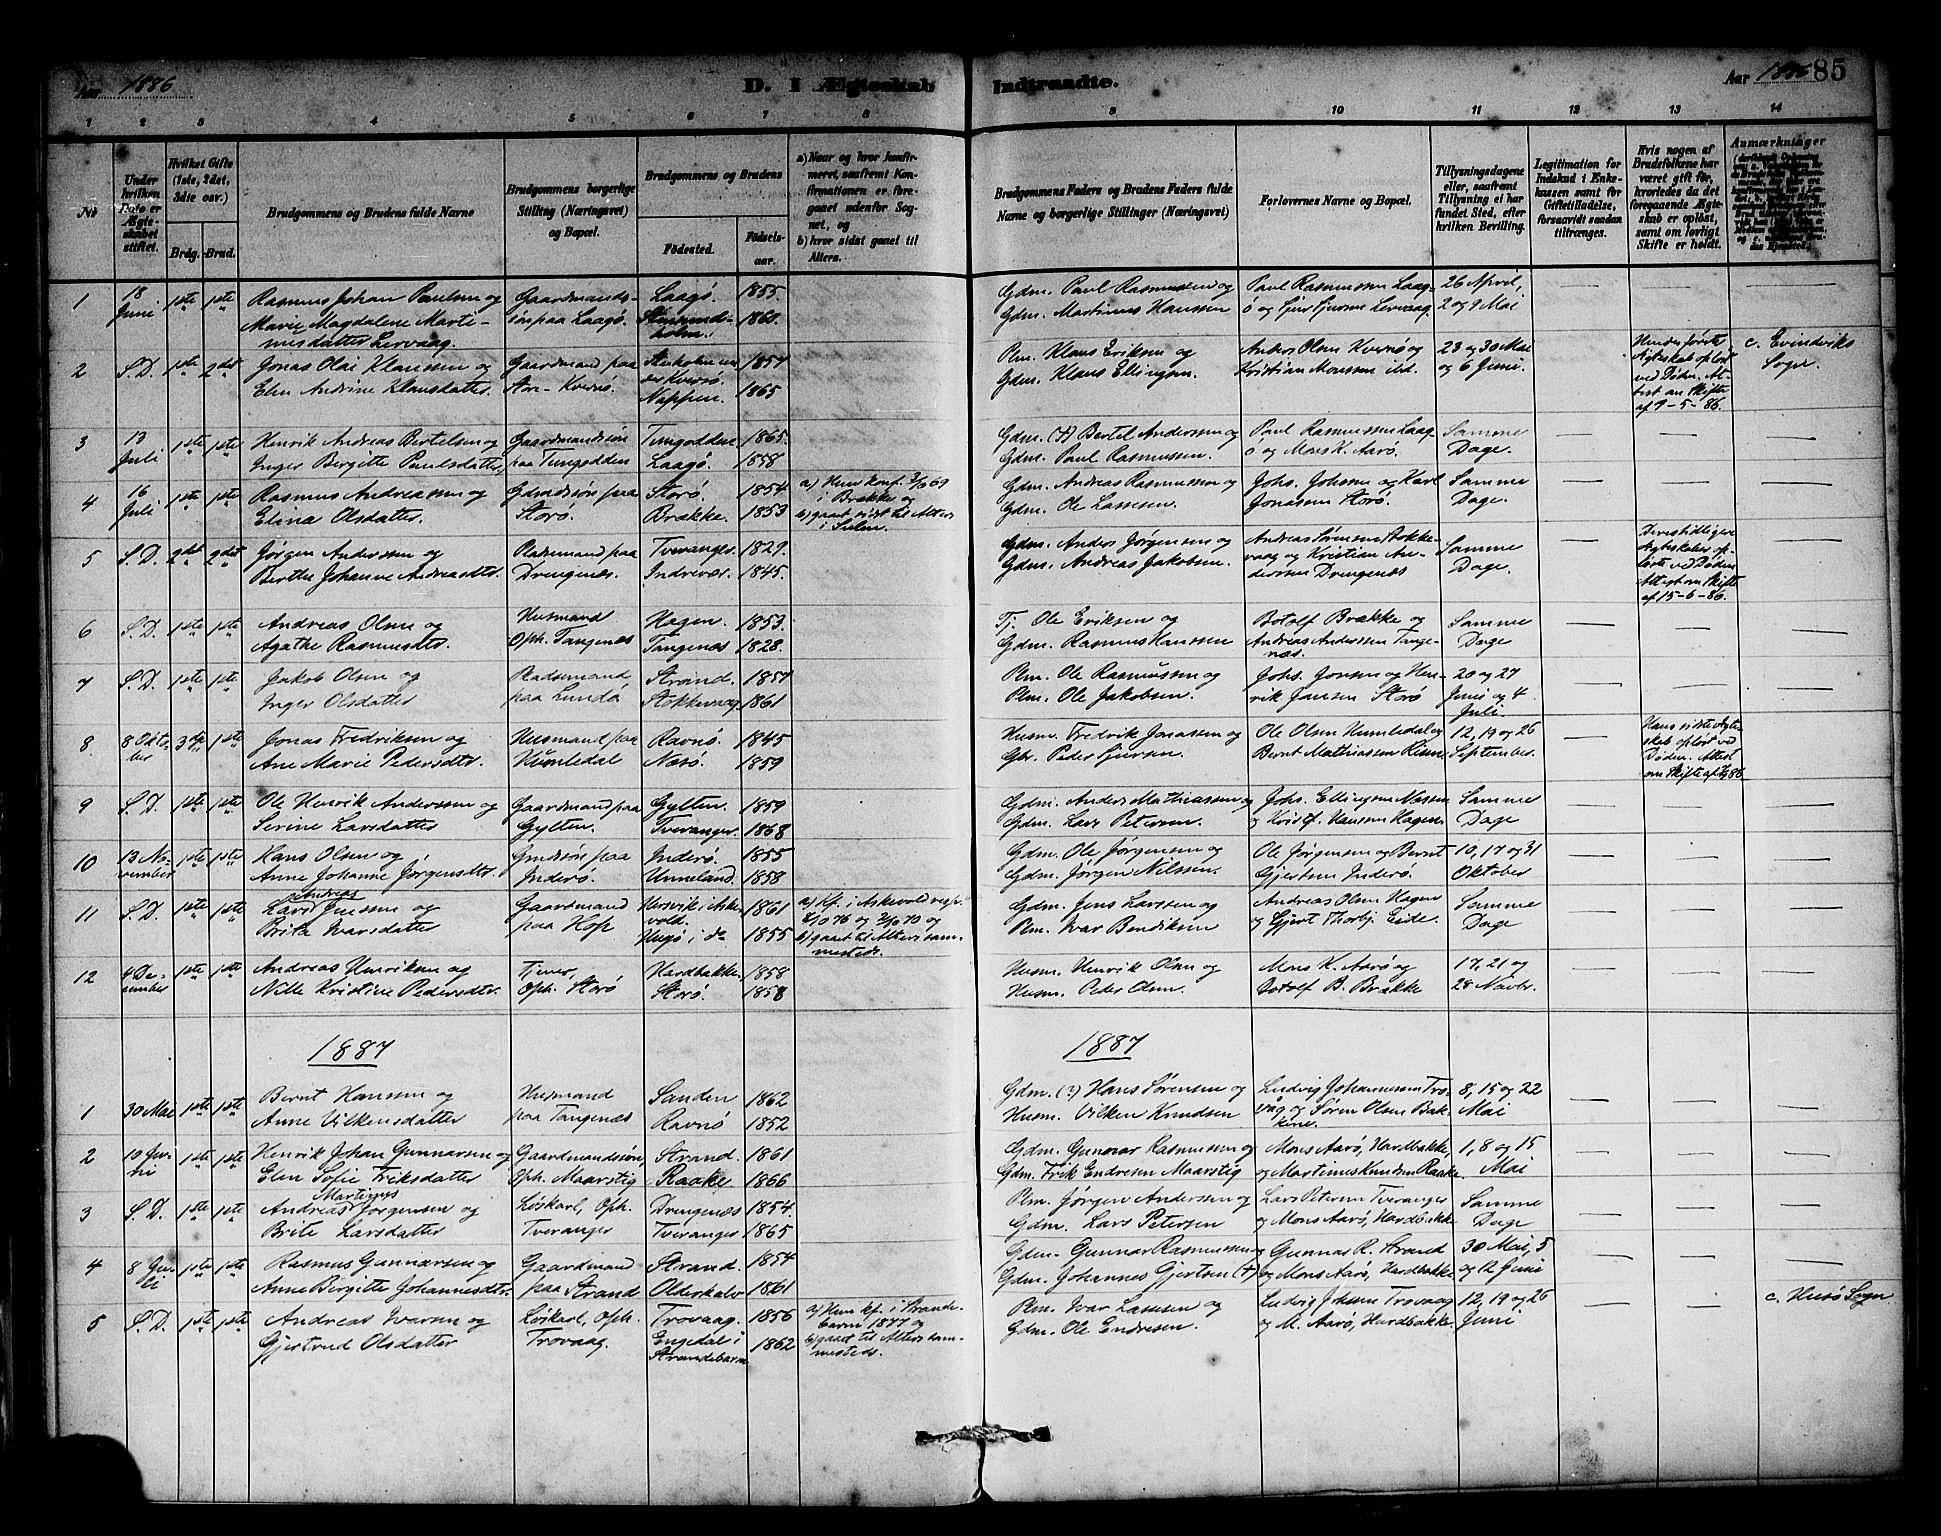 Aar 1886
D. I Ægteskab Indtraadte.
Aar 1886 85
1 2 3 4 5 6 7 8 9 10 11 12 13 14
No
Under hvilken Dato er Ægteskabet stiftet.
Hvilket Gifte (1ste, 2det, 3die osv.)
Brdg. Brud.
Brudgommens og Brudens fulde Navne
Brudgommens borgerlige Stilling (Næringsvei) og Bopæl.
Brudgommens og Brudens
Fødested.
Fødselsaar.
a) Naar og hvor konfirmeret, saafremt Konfirmationen er foregaaet udenfor Sognet, og
b) hvor sidst gaaet til Alters.
Brudgommens Faders og Brudens Faders fulde Navne og borgerlige Stillinger (Næringsvei)
Forlovernes Navne og Bopæl.
Tillysningsdagene eller, saafremt Tillysning ei har fundet Sted, efter hvilken Bevilling.
Legitimation for Indskud i Enkekassen samt for Giftetilladelse, forsaavidt saadan tiltrænges.
Hvis nogen af Brudefolkene har været gift før, hvorledes da det foregaaende Ægteskab er opløst, samt om lovligt Skifte er holdt.
Anmærkninger
1 18 Juni 1ste 1ste Rasmus Johan Paulsen og Gaardmands- Laagø. 1855 Gdm. Paul Rasmussen og Paul Rasmussen Laag- 26 April,
Marie Magdalene Marti- søn paa Laagø. 1860. Gdm. Martinus Hanssen ø og Sjur Sjursen Lervaag. 2 og 9 Mai
nusdatter Lervaag.
2 S.D. 1ste 2det Jonas Olai Klaussen og Gaardmand paa Steinholmen un- 1857 Pm. Klaus Eriksen og Anders Olsen Kvernø og 23 og 30 Mai Hendes første c. Evindviks
Elen Andrine Klausdatter. Kvernø. der Kvernø. Gdm. Klaus Ellingsen. Kristian Monssen ibd. og 6 Juni. Ægteskab opløst Sogn.
Nappen. 1865 ved Døden. At-
test om Skifte
af 7-5-86.
3 13 Juli 1ste 1ste Henrik Andreas Bertelsen og Gaardmandssøn Tungodden 1865. Gdm. (+) Bertel Anderssen og Paul Rasmussen Laag- Samme
Inger Birgitte Paulsdatter, paa Tungodden Laagø. 1858 Gdm. Paul Rasmussen. ø og Mons K. Aarø. Dage.
4 16 Juli 1ste 1ste Rasmus Andreassen og Gdmdssøn paa Storø. 1854 a) Hun konf. 3/10 69 Gdm. Andreas Rasmussen og Johs. Johssen og Karl Samme
Elina Olsdatter. Storø. Brække. 1853 i Brække og Gdm. Ole Lassesen. Jonassen Storø. Dage.
b) gaaet sidst til Alters
i Sulen.
5 S.D. 2det 2det Jørgen Anderssen og Pladsmand paa Tveranger. 1829. Gdm. Anders Jørgensen og Andreas Sørensen Stokke- Samme Deres tidligere
Berthe Johanne Andreasdtr. Drengenæs. Indrevær. 1845. Gdm. Andreas Jakobsen. vaag og Kristian An- Dage. Ægteskaber op-
derssen Drengenæs løste ved Døden.
Attest om Skifte
af 15-6-86.
6 S.D. 1ste 1ste Andreas Olsen og Husmand Hagen. 1853. Tj. Ole Eriksen og Botolf Brække og Samme
Agathe Rasmusdtr. Oph. Tangenæs Tangenæs 1828. Gdm. Rasmus Hanssen Andreas Anderssen Tange- Dage
næs.
7 S.D. 1ste 1ste Jakob Olsen og Pladsmand Strand. 1857 Pm. Ole Rasmussen og Johs. Jonsen og Hen- 20 og 27
Inger Olsdatter paa Lundø Stokkevaag 1861 Pm. Ole Jakobsen. rik Jansen Storø Juni og 4
Juli.
8. 8 Okto- 3die 1ste Jonas Fredriksen og Husmand paa Ravnø. 1845 Husm. Fredrik Jonassen og Ole Olsen Humledal og 12, 19 og 26 Hans sidste Ægte-
ber Ane Marie Pedersdtr. Humledal Nasø. 1859 Gbr. Peder Sjursen. Bernt Mathiassen Risn. September. skab opløst ved
Døden. Attest
om Skifte af
9 S.D. 1ste 1ste Ole Henrik Anderssen og Gaardmand paa Gylten. 1859 Gdm. Anders Mathiassen og Johs. Ellingsen Næssen Samme
Serine Larsdatter Gylten. Tveranger. 1868 Gdm. Lars Petersen. og Kristf. Hansen Hagen. Dage
10 13 No- 1ste 1ste Hans Olsen og Gmdssøn paa Inderø. 1855 Gdm. Ole Jørgensen og Ole Jørgensen og Bernt 10, 17 og 31
vember Anne Johanne Jørgensdtr. Inderø. Unneland. 1858 Gdm. Jørgen Nilssen. Gjertsen Inderø. Oktober
11 S.D. 1ste 1ste Lars Andreas Jenssen og Gaardmand Hersvik i Aske- 1861 a) Kf. i Askevold resp. Gdm. Jens Larssen og Andreas Olsen Hagen Samme
Brita Ivarsdatter paa Hop vold. 1/10 76 og 2/10 70 og Pm. Ivar Bendiksen og Gjert Thorbj. Eide. Dage.
Husø i do 1855 b) gaaet til Alters sam-
mesteds.
12 4 De- 1ste 1ste Andreas Henriksen og Tjener, Hardbakke. 1858 Husm. Henrik Olsen og Mons K. Aarø og 17, 21 og
cember Nille Kristine Pedersdtr. Oph. Storø Storø. 1858 Husm. Peder Olsen. Botolf B. Brække 28 Novbr.
1887 1887
1 30 Mai 1ste 1ste Bernt Hansen og Husmand Sanden 1862 Gdm. (?) Hans Sørensen og Ludvig Johannessen Tro- 8, 15 og 22
Anne Vilkensdatter paa Tangenæs Ravnø 1852 Husm. Vilken Knudsen våg, og Søren Olsen Bak- Mai
kene.
2 10 Ju- 1ste 1ste Henrik Johan Gunnarsen og Gaardmandssøn, Strand. 1861 Gdm. Gunnar Rasmussen og Mons Aarø, Hardbakke, 1, 8 og 15
ni Elen Sofie Eriksdatter Oph. Maarstig Raake 1866 Gdm. Erik Endresen Maarstig og Martinus Knudsen Raake. Mai
3 S.D. 1ste 1ste Andreas Martines Jørgensen og Løskarl, Oph. Drengenæs 1854. Pm. Jørgen Anderssen og Lars Petersen Tveranger Samme
Brite Larsdatter Tveranger Tveranger 1865 Gdm. Lars Petersen og Mons Aarø, Hardbakke Dage
4 8 Ju- 1ste 1ste Rasmus Gunnarsen og Gaardmand Strand. 1854 Gdm. Gunnar Rasmussen og Gunnar R. Strand 30 Mai, 5
li Anne Birgitte Johannesdtr. paa Strand Olderkalv 1861 Gdm. Johannes Gjertsen (+) og Mons Aarø, Hardbakke og 12 Juni
5 S.D. 1ste 1ste Andreas Ivarsen og Løskarl, Oph. Trovaag. 1856 a) Hun kf. i Strande- Pm. Ivar Lassesen og Ludvig Johssen Trovaag 12, 19 og 26 c. Husø Sogn
Gjertrud Olsdatter Trovaag. Engedal i 1862 barm 1877 og Gdm. Ole Endresen. og M. Aarø, Hardbakke. Juni
Strandebarm b) gaaet til Alters sam-
mesteds.